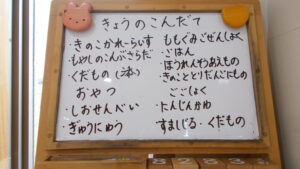 きょうのこんだて
・きのこかれーらいす
・もやしのこんぶさらだ
・くだもの
おやつ
・しおせんべい
・ぎゅうにゅう
ももぐみごぜんしょく
・ごはん
・ほうれんそうあえもの
・きのことりだんごにもの
ごごしょく
・にんじんかゆ
・すましじる・くだもの